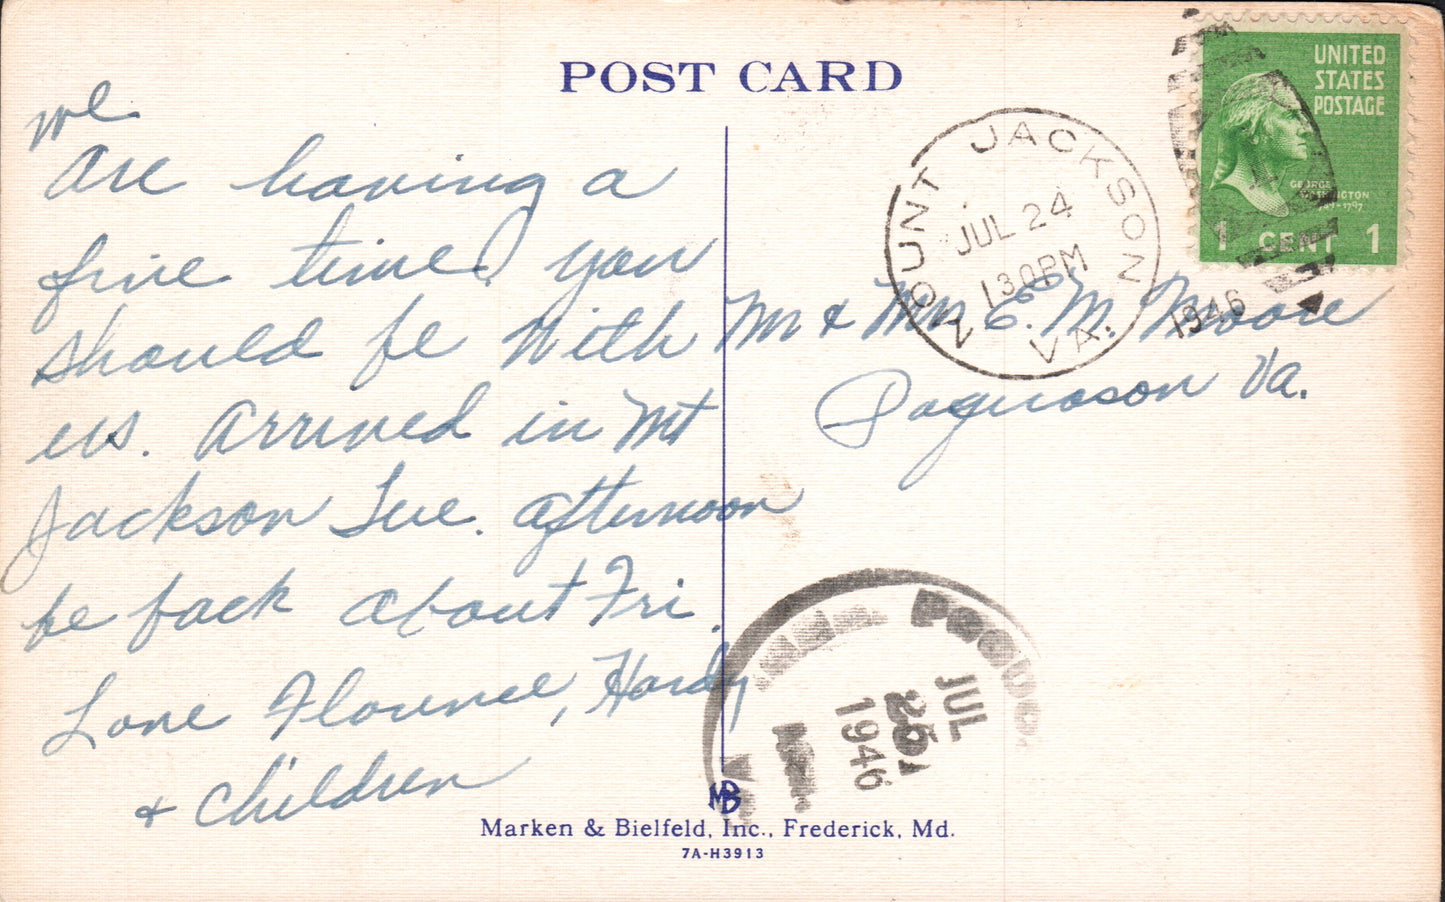 POST CARD
we
are having a
fine time, you
should be with
us. Arrived in Mt
Jackson Tue. afternoon
be back about Fri.
Love Florence, Hardy
+ children
Mr & Mrs E. M. Moore
Poquoson Va.
MOUNT JACKSON
JUL 24
130PM
1946
VA.
UNITED
STATES
POSTAGE
GEORGE
1 CENT 1
JUL
25 A
1946
MB
Marken & Bielfeld, Inc., Frederick, Md.
7A-H3913